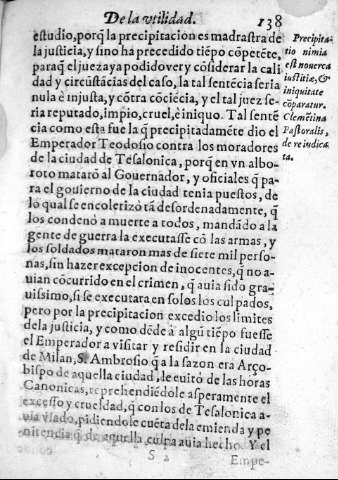 De la vtilidad.
138
estudio, porq̃ la precipitacion es madrastra de
la justicia, y sino ha precedido tiẽpo cõpetẽte,
paraq̃ el juez aya podido ver y cõsiderar la cali
dad y circũstãcias del caso, la tal sentẽcia seria
nula è injusta, y cõtra cõciẽcia, y el tal juez se-
ria reputado, impio, cruel, è iniquo. Tal sentẽ
cia como esta fue la q̃ precipitadamẽte dio el
Emperador Teodosio contra los moradores
de la ciudad de Tesalonica, porq̃ en vn albo-
roto matarõ al Gouernador, y oficiales q̃ pa-
ra el gouierno de la ciudad tenia puestos, de
lo qual se encolerizò tã desordenadamente, q̃
los condenò a muerte a todos, mandãdo a la
gente de guerra la executasse cõ las armas, y
los soldados mataron mas de siete mil perso-
nas, sin hazer excepcion de inocentes, q̃ no a-
uian cõcurrido en el crimen, q̃ auia sido gra-
uissimo, si se executara en solos los culpados,
pero por la precipitacion excedio los limites
dela justicia, y como dẽde à algũ tiẽpo fuesse
el Emperador a visitar y residir en la ciudad
de Milan, S. Ambrosio q̃ a la sazon era Arço-
bispo de aquella ciudad, le euitò de las horas
Canonicas, reprehendiẽdole asperamente el
excesso y crueldad, q̃ con los de Tesalonica a-
uia vsado, pidiendole cuẽta dela emienda y pe
nitencia q̃ de aquella culpa auia hecho. Y el
S 2
Empe-
Precipita-
tio nimia
est nouerca
iustitiæ, &
iniquitate
cõparatur.
Clemẽtina
Pastoralis,
de re iudica
ta.